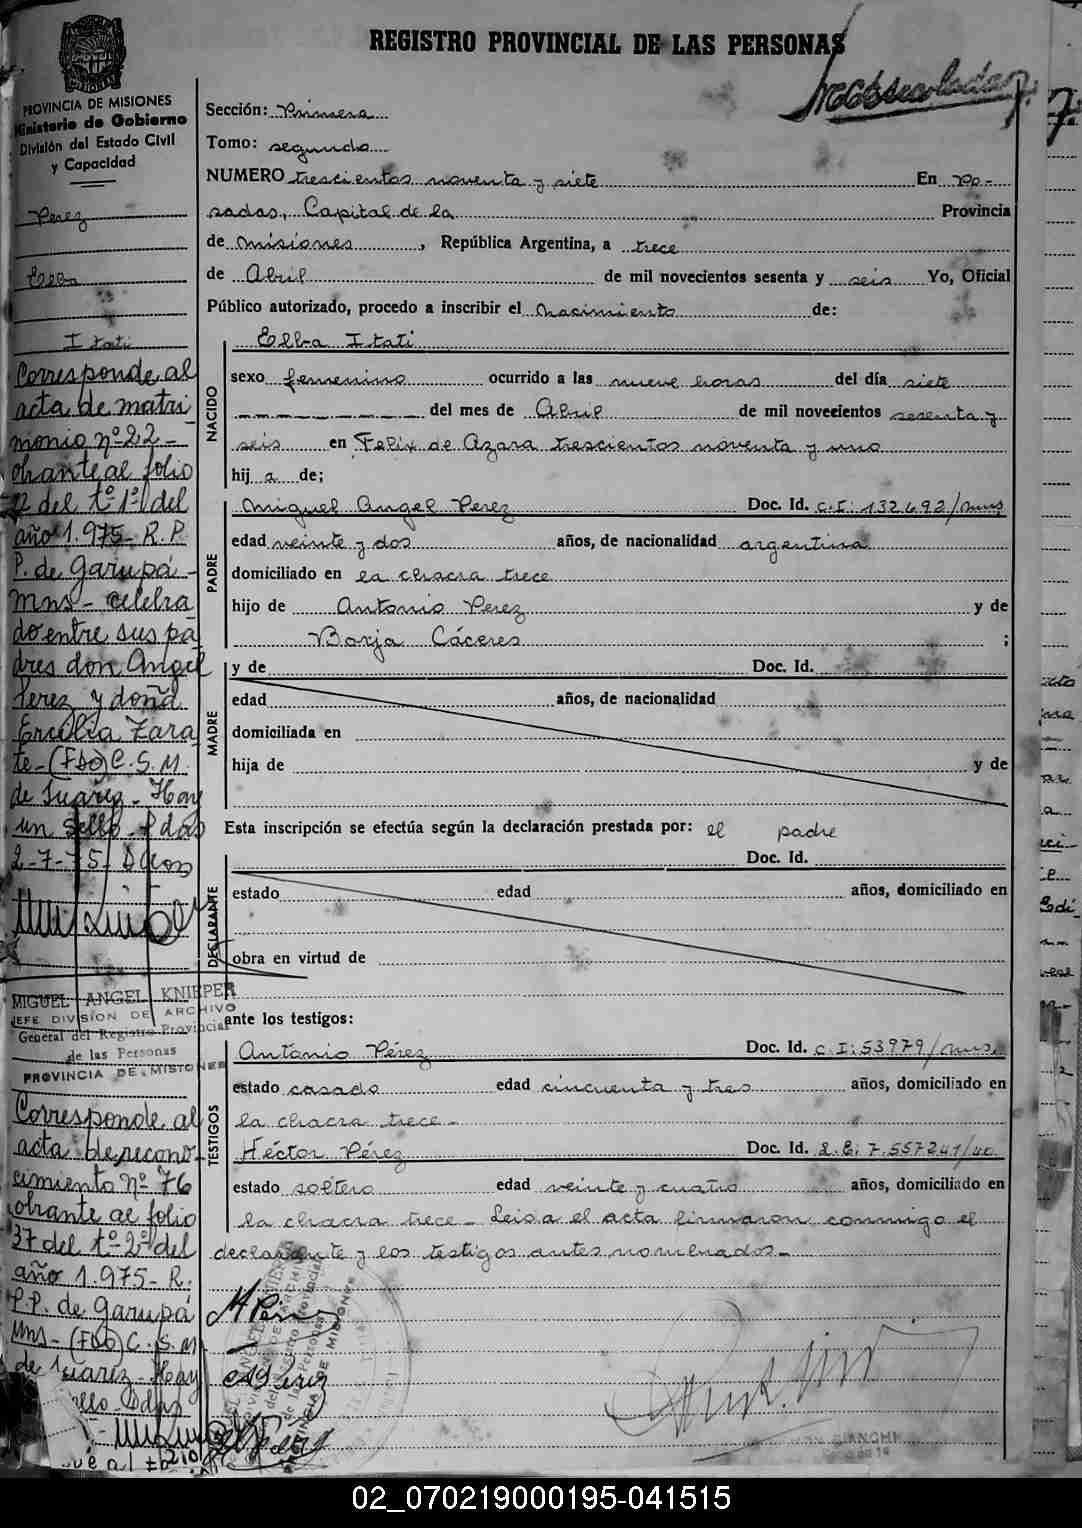 REGISTRO PROVINCIAL DE LAS PERSONAS
PROVINCIA DE MISIONES
Ministerio de Gobierno
División del Estado Civil
y Capacidad
Perez
Elba
Itati
Corresponde al
acta de matri
monio nº 22-
obrante al folio
del tº 1º del
año 1.975- R.P.
P. de Garupá-
Mns- celebra
do entre sus pa
dres don Angel
Perez y doña
Ercilia Zara
te-(FDO) C.S.M.
de Suárez- Hay
un sello- Pdas
2-7-75-
MIGUEL ANGEL KNIEPER
JEFE DIVISION DE ARCHIVO
General del Registro Provincial
de las Personas
PROVINCIA DE MISIONES
Corresponde al
acta de recono-
cimiento nº 76
obrante al folio
37 del tº 2º del
año 1.975- R.
P.P. de Garupá
Mns- (FDO) C.S.M
de Suarez- Hay
Sección: Primera
Tomo: segundo
NUMERO trescientos noventa y siete En Po-
sadas, Capital de la Provincia
de misiones, República Argentina, a trece
de Abril de mil novecientos sesenta y seis Yo, Oficial
Público autorizado, procedo a inscribir el nacimiento de:
Elba Itati
NACIDO
sexo femenino ocurrido a las nueve horas del día siete
del mes de Abril de mil novecientos sesenta y
seis en Felix de Azara trescientos noventa y uno
hija de;
PADRE
Miguel Angel Perez Doc. Id. C.I: 132.692/mns
edad veinte y dos años, de nacionalidad argentina
domiciliado en la chacra trece
hijo de Antonio Perez y de
Borja Cáceres ;
MADRE
y de Doc. Id.
edad años, de nacionalidad
domiciliada en
hija de y de
Esta inscripción se efectúa según la declaración prestada por: el padre
DECLARANTE
Doc. Id.
estado edad años, domiciliado en
obra en virtud de
ante los testigos:
TESTIGOS
Antonio Pérez Doc. Id. C.I: 53979/mns.
estado casado edad cincuenta y tres años, domiciliado en
la chacra trece-
Héctor Pérez Doc. Id. L.E: 7.557241/
estado soltero edad veinte y cuatro años, domiciliado en
la chacra trece- Leida el acta firmaron conmigo el
declarante y los testigos antes nombrados-
02_070219000195-041515